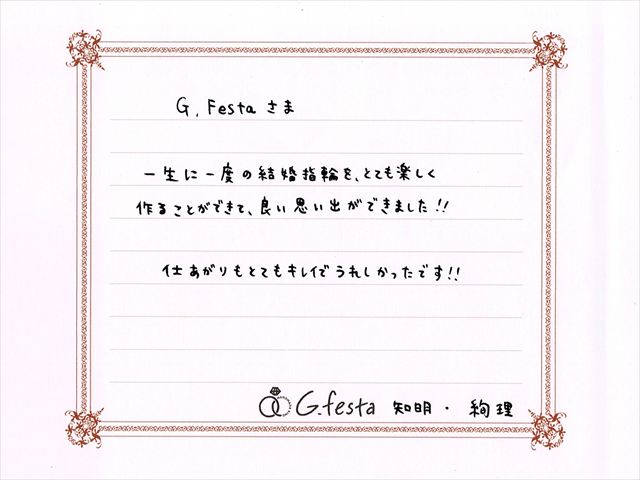 G. Festa さま
一生に一度の結婚指輪を、とても楽しく
作ることができて、良い思い出ができました!!
仕あがりもとてもキレイでうれしかったです!!
G.festa 知明・絢理